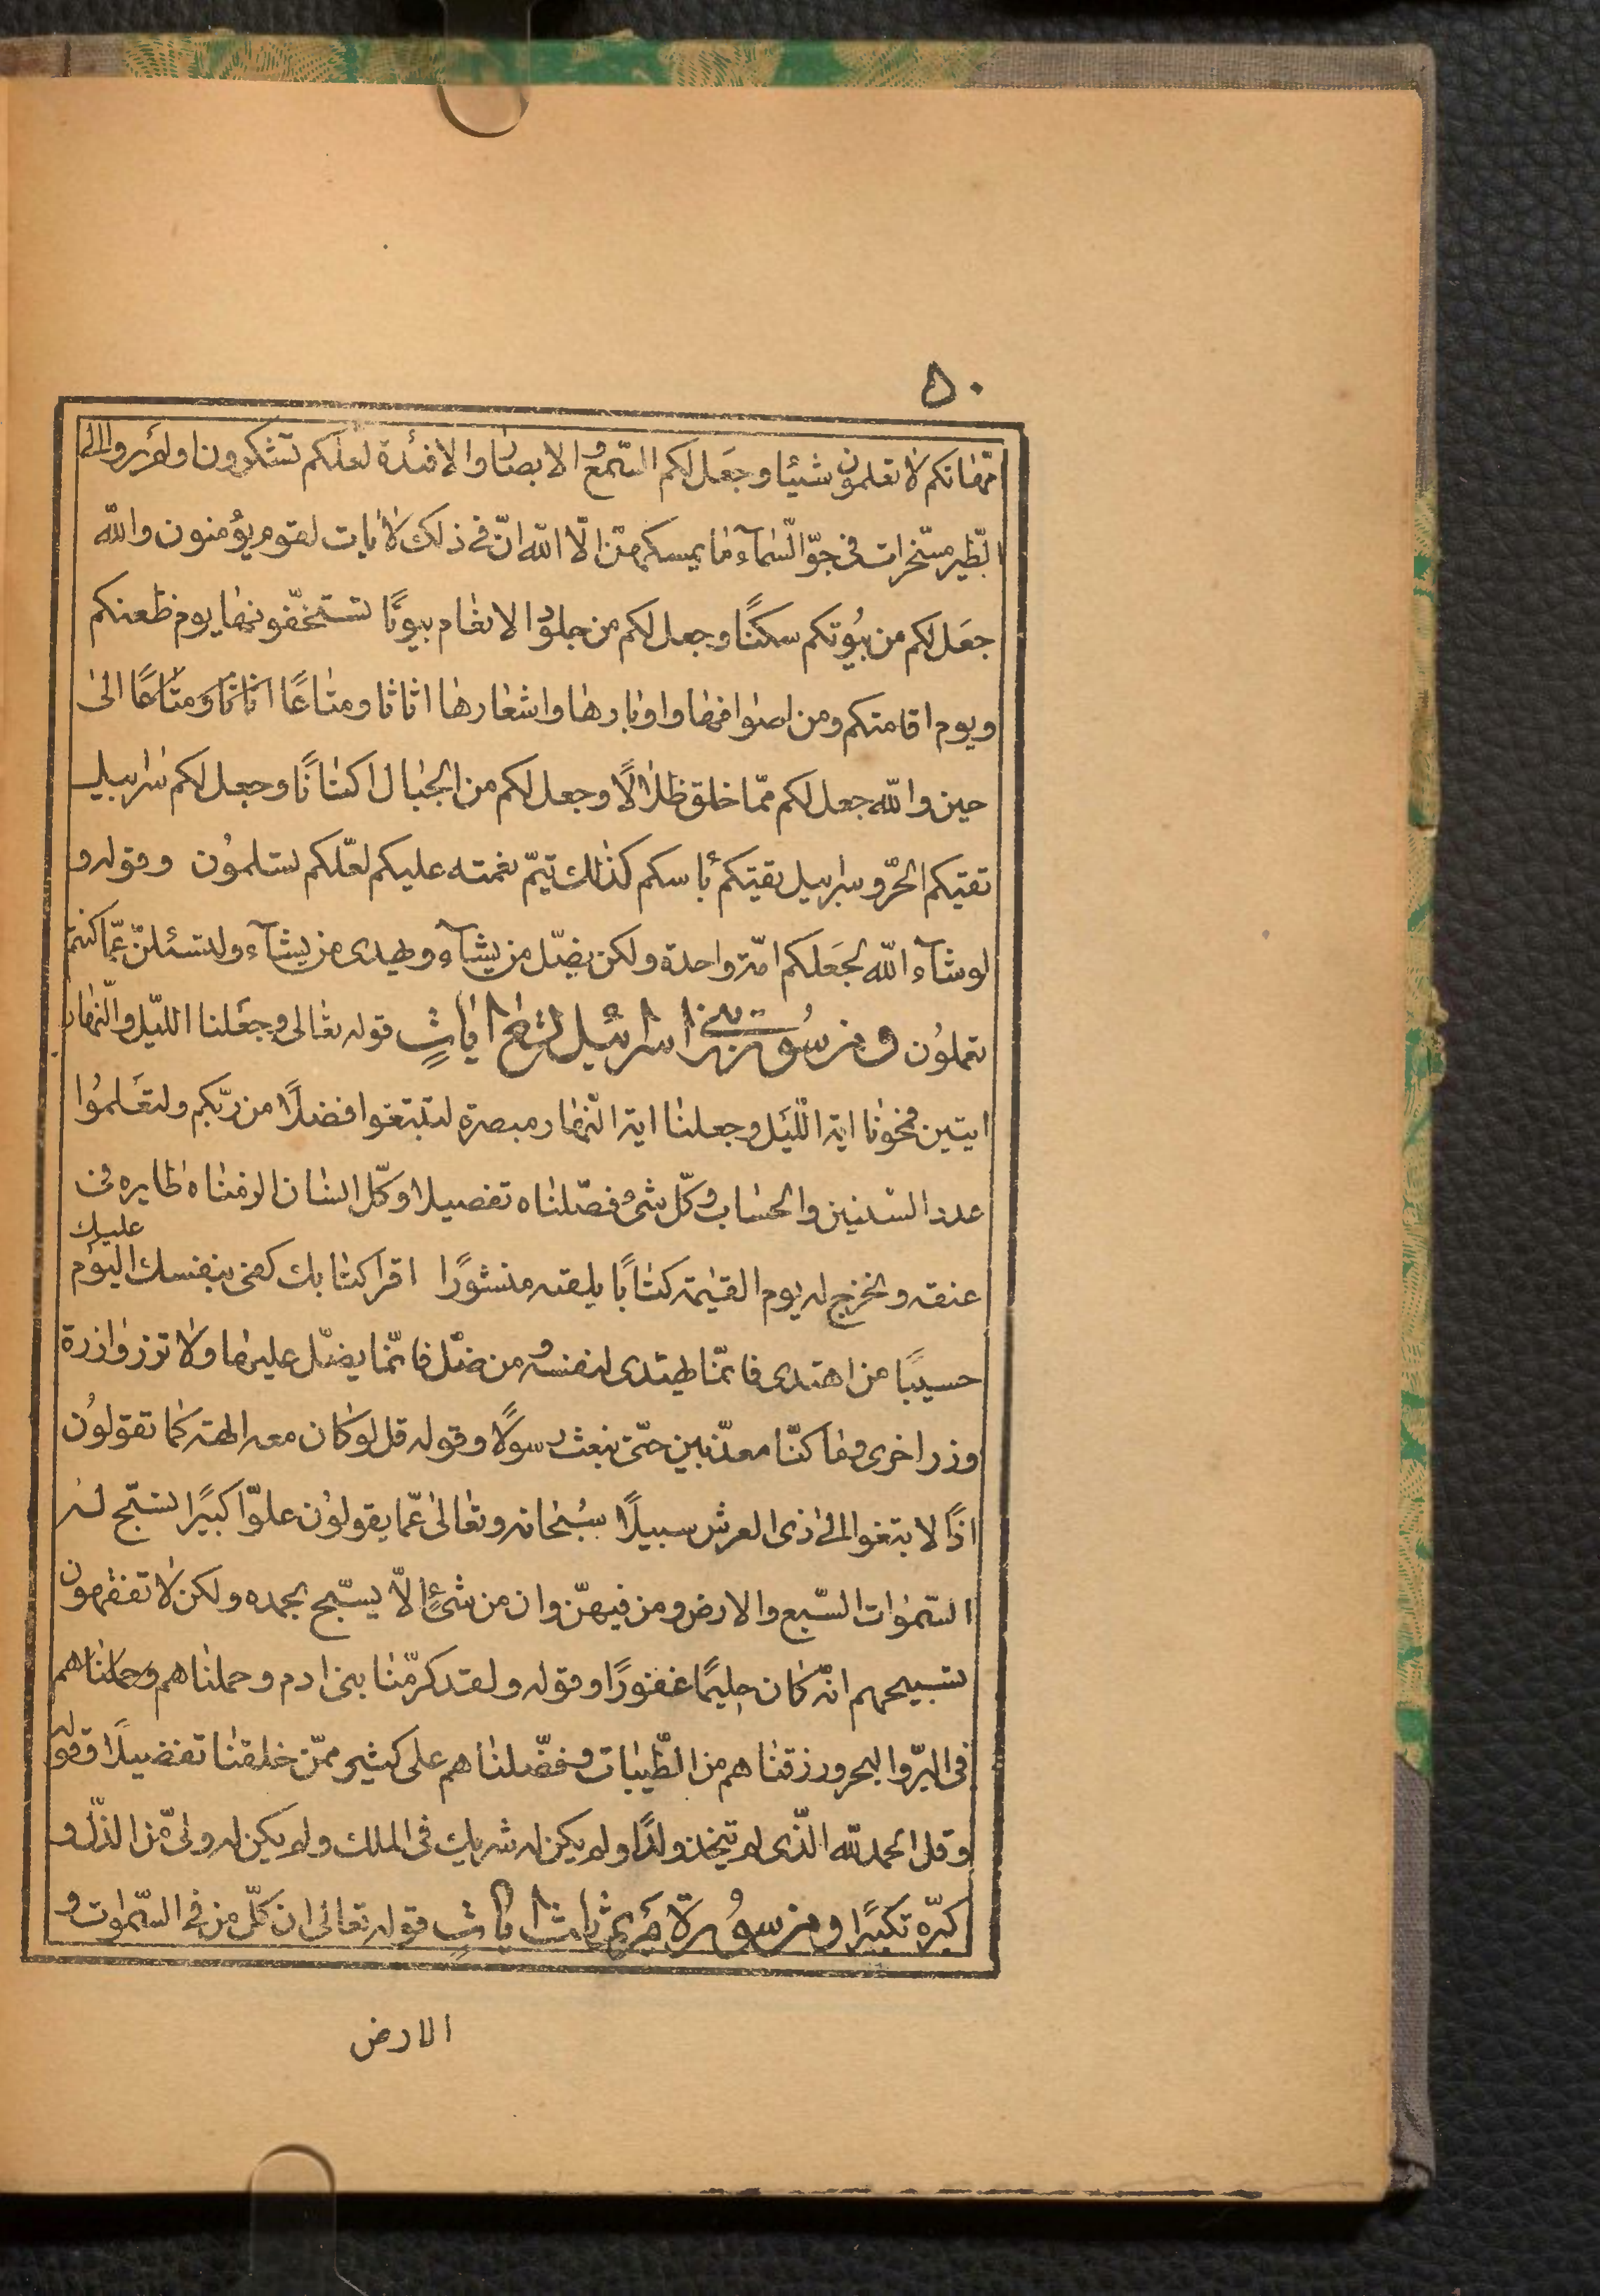 ۵۰
امّهٰاتكم لا تعلمون شيئا وجعَل لكم السّمع و الابصٰار والافئدة لعلّكم تشكرون اولم يروا الى
الطّير مسخّرات فى جوّ السّمآء مٰا يمسكهنّ الّا اللّه انّ فى ذلك لاٰيات لقوم يؤمنون واللّه
جعَل لكم من بيُوتكم سكنًا وجعل لكم من جلوُد الانعٰام بيوتًا تستخفّونهٰا يوم ظعنكم
ويوم اقامتكم ومن اصوٰافهٰا واوبٰارهٰا واشعٰارهٰا اثاثا ومتٰاعًا اثاثا ومتٰاعًا الىٰ
حين واللّه جعل لكم ممّا خلق ظلٰالًا وجعل لكم من الجبٰال اكنٰانًا وجعل لكم سٰرابيل
تقيكم الحرّ و سرابيل تقيكم بأسكم كذٰلك يتمّ نعمته عليكم لعّلكم تسلموُن وقوله و
لو شآء اللّه لجعَلكم امّة واحدة ولكن يضلّ من يشآء ويهدى من يشآء ولتسئلنّ عمّا كنتم
تعملوُن ومن سُورة بنى اسرائيل اٰياتٍ قوله تعٰالى وجعَلنا اللّيل والنّهٰار
ايتين فمحوٰنا اية اللّيَل وجعلنٰا اية النّهٰار مبصرة لتبتغوا فضلًا من ربّكم ولتعَلموُا
عدد السّنين والحسٰاب و كلّ شئ فصّلنٰاه تفصيلا وكلّ انسٰان الزمنٰاه طٰايره فى
عنقه ونخرج له يوم القيٰمة كتٰابًا يلقيه منشورًا اقرا كتٰابك كفى بنفسك اليوم عليك
حسيبًا من اهتدى فانّمٰا يهتدى لنفسه و من ضلّ فانّمٰا يضلّ عليهٰا ولا تزر وازرة
وزر اخرى ومٰا كنّا معذّبين حتّى نبعث رسولًا وقوله قل لو كٰان معه الهة كمٰا تقولوُن
اذًا لابتغوا الى ذى العرش سبيلًا سُبحٰانه وتعٰالىٰ عمّا يقولوُن علوّا كبيرًا تسبّح له
السّموٰات السّبع والارض ومن فيهنّ وان من شئٍ الّا يسبّح بحمده ولكن لا تفقهون
تسبيحهم انّه كٰان حليمًا غفورًا وقوله ولقد كرّمنٰا بنى ادم وحملنٰاهم وحملنٰاهم
فى البرّ والبحر ورزقنٰاهم من الطّيبٰات و فضّلنٰاهم على كثير ممّن خلقنٰا تفضيلًا وقوله
وقل الحمد للّه الّذى لم يتّخذ ولدًا ولم يكن له شريك فى الملك ولم يكن له ولىّ من الذّلّ و
كبّره تكبيرًا ومن سوُرة مَريم ثلٰث اٰياتٍ قوله تعٰالى ان كلّ من فى السّمٰوات و
الارض